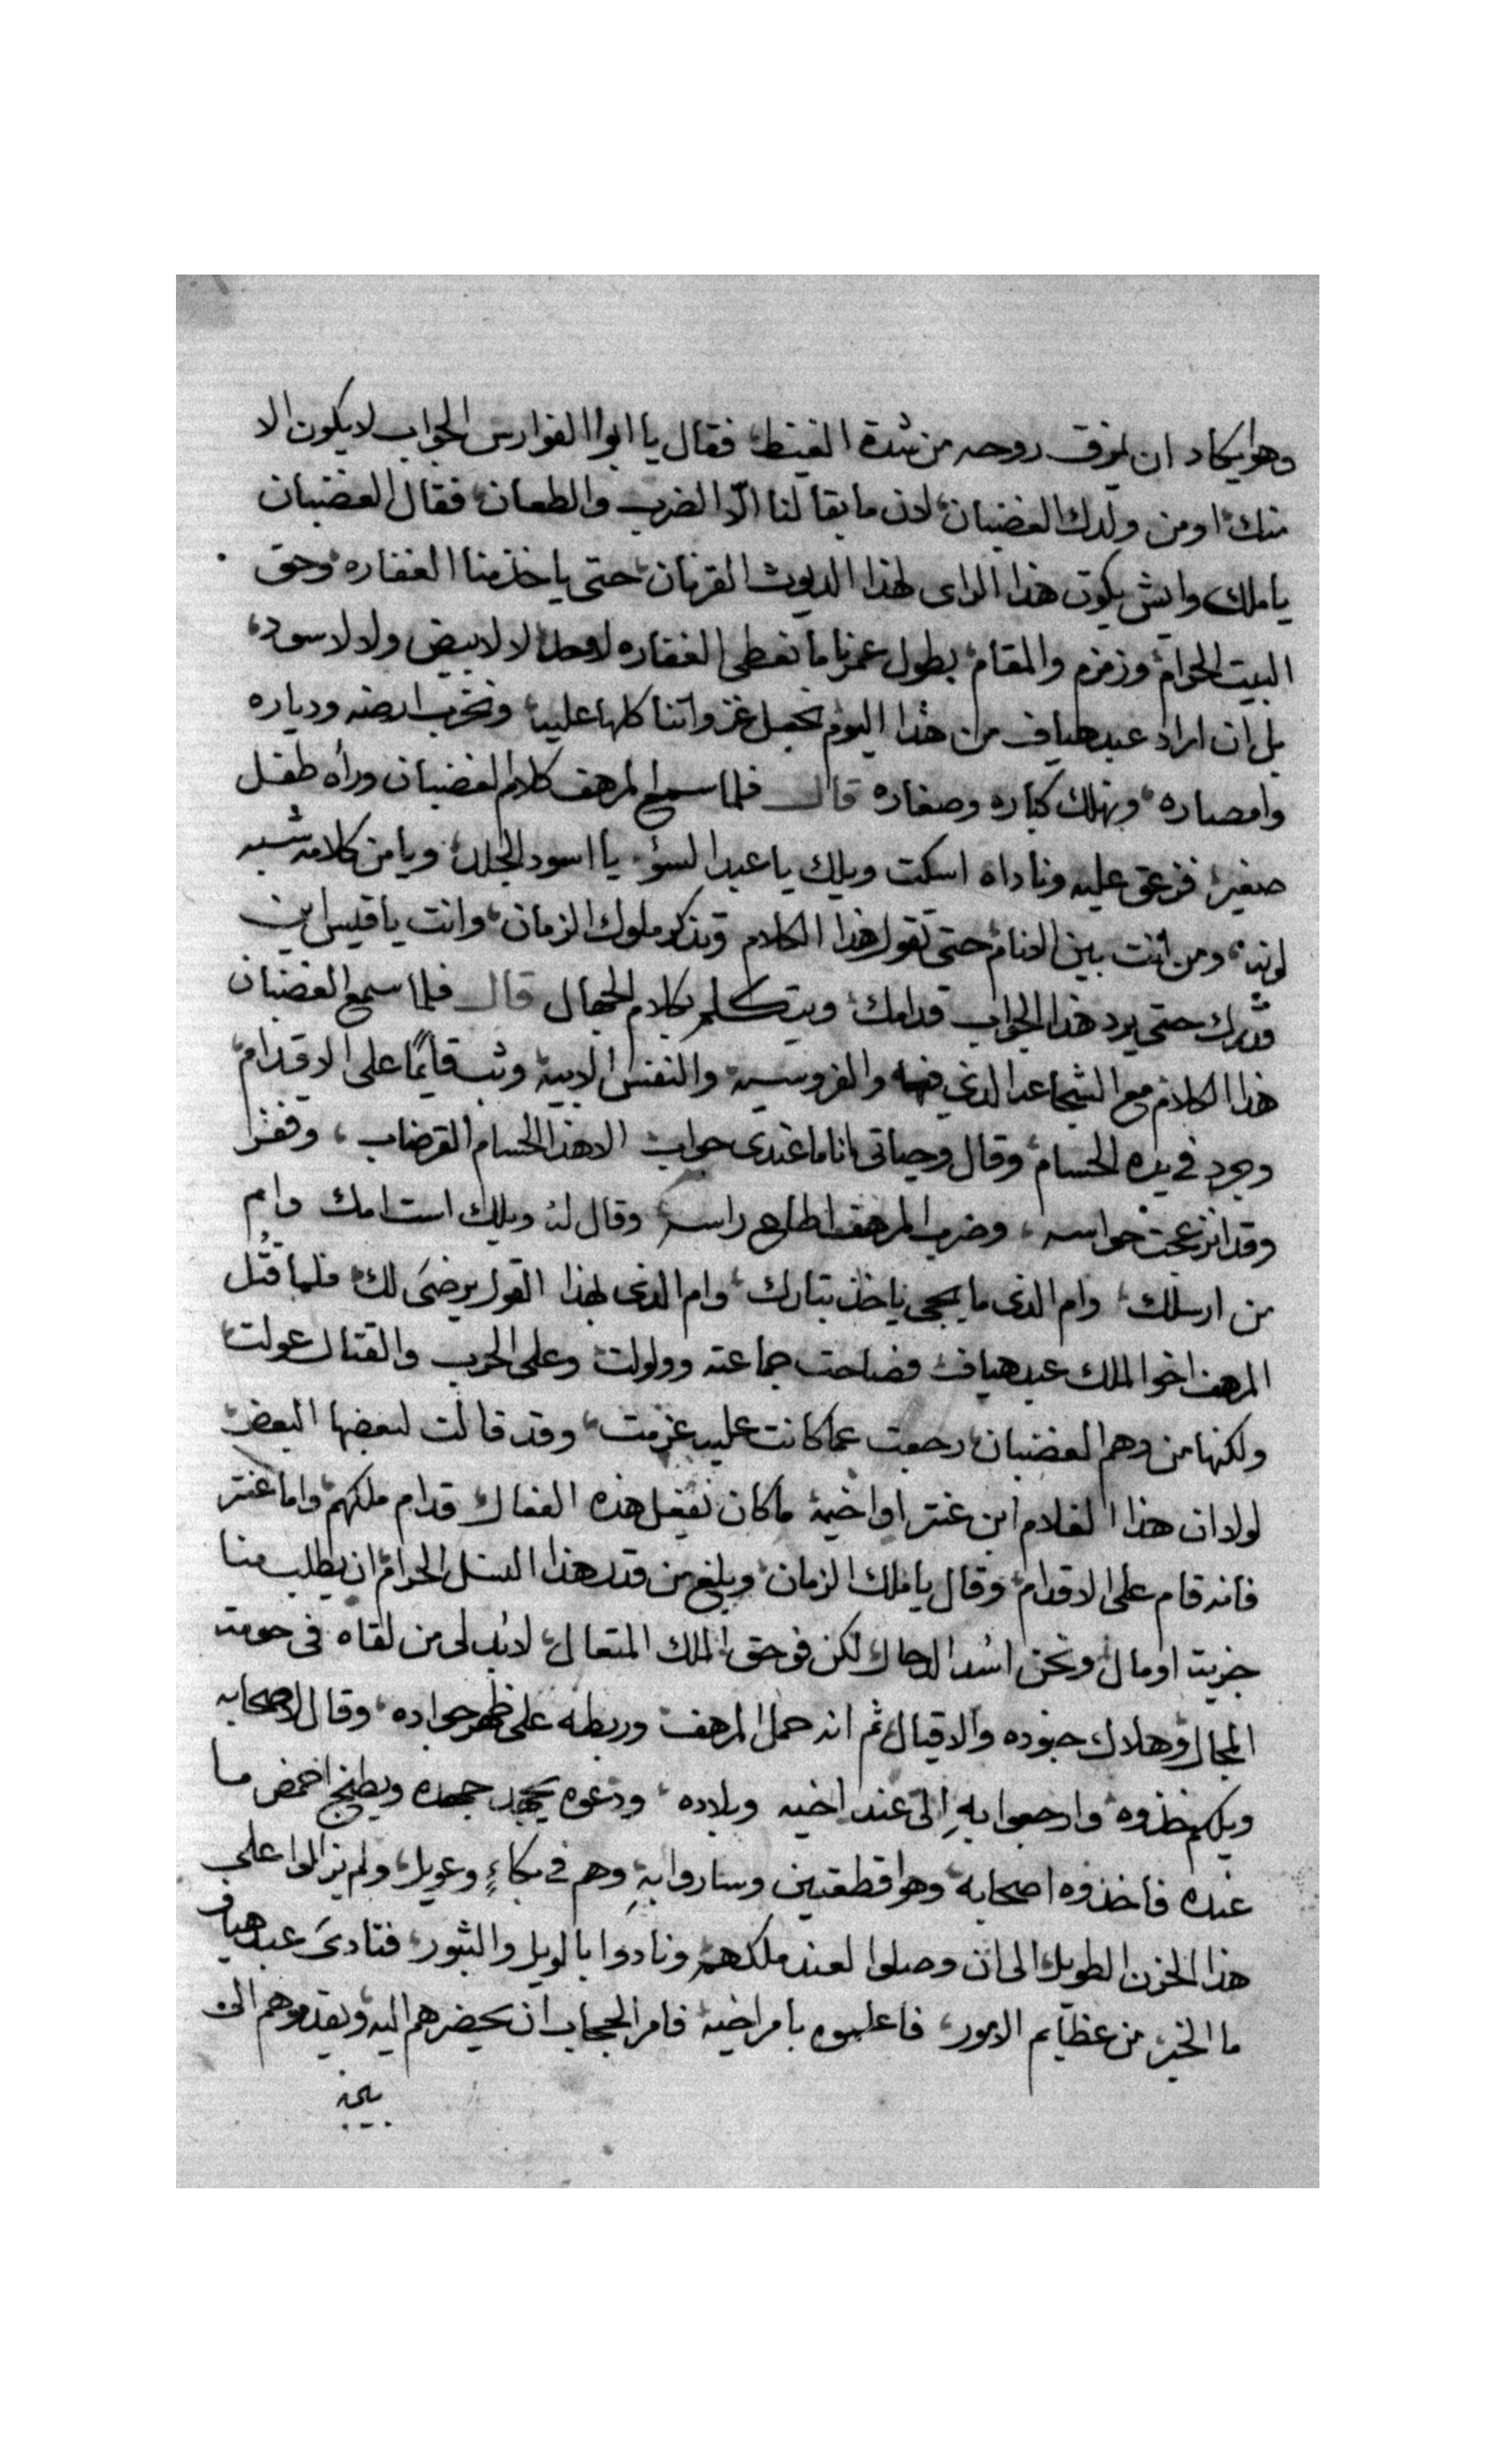 وهو يكاد ان يمزق روحه من شدة الغيظ فقال يا ابوا الفوارس الجواب لا يكون الا
منك او من ولدك الغضبان لان ما بقا لنا الّا الضرب والطعان فقال الغضبان
يا ملك وايش يكون هذا الراى لهذا الديوث القرنان حتى ياخذ منا الغفاره وحق
البيت الحرام وزمزم والمقام بطول عمرنا ما نعطى الغفاره لاحد لا لابيض ولا لاسود
بل ان اراد عبد هياف من هذا اليوم نجعل غزواتنا كلها عليه ونخرب ارضه ودياره
وامصاره ونهلك كباره وصغاره قال فلما سمع المرهف كلام الغضبان وراه طفل
صغير فزعق عليه وناداه اسكت ويلك يا عبد السؤ يا اسود الجلد ويا من كلامه شبه
لونه ومن انت بين الانام حتى تقول هذا الكلام وتذكر ملوك الزمان وانت يا قيس اين
قدرك حتى يرد هذا الجواب قدامك ويتكلم بكلام الجهال قال فلما سمع الغضبان
هذا الكلام مع الشجاعه الذي فيه والفروسيه والنفس الابيه وثب قايمًا على الاقدام
وجرد في يده الحسام وقال وحياتى انا ما عندى جواب الا هذا الحسام القرضاب وقفز
وقد انزعجت حواسه وضرب المرهف اطاح راسه وقال له ويلك است امك وام
من ارسلك وام الذى ما يجى ياخذ بتارك وام الذى بهذا القول يرضى لك فلما قتل
المرهف اخو الملك عبد هياف فصاحت جماعته وولولت وعلى الحرب والقتال عولت
ولكنها من وهم الغضبان رجعت عما كانت عليه عزمت وقد قالت لبعضها البعض
لولا ان هذا الغلام ابن عنتر او اخيه ما كان يفعل هذه الفعال قدام ملكهم واما عنتر
فانه قام على الاقدام وقال يا ملك الزمان وبلغ من قدر هذا النسل الحرام ان يطلب منا
جزيه او مال ونحن اسد الدحال لكن فوحق الملك المتعال لابد لى من لقاه فى حومة
المجال وهلاك جنوده والاقيال ثم انه حمل المرهف وربطه على ظهر جواده وقال لاصحابه
ويلكم خذوه وارجعوا بهِ الى عند اخيه وبلاده ودعوه يجهد جهده ويطبخ احمض ما
عنده فاخذوه اصحابه وهو قطعتين وساروا بهِ وهم في بكاءٍ وعويل ولم يزالوا على
هذا الحزن الطويل الى ان وصلوا لعند ملكهم ونادوا بالويل والثبور فنادى عبد هياف
ما الخبر من عظايم الامور فاعلموه بامر اخيه فامر الحجاب ان تحضرهم اليه ويقدموهم الى
بين